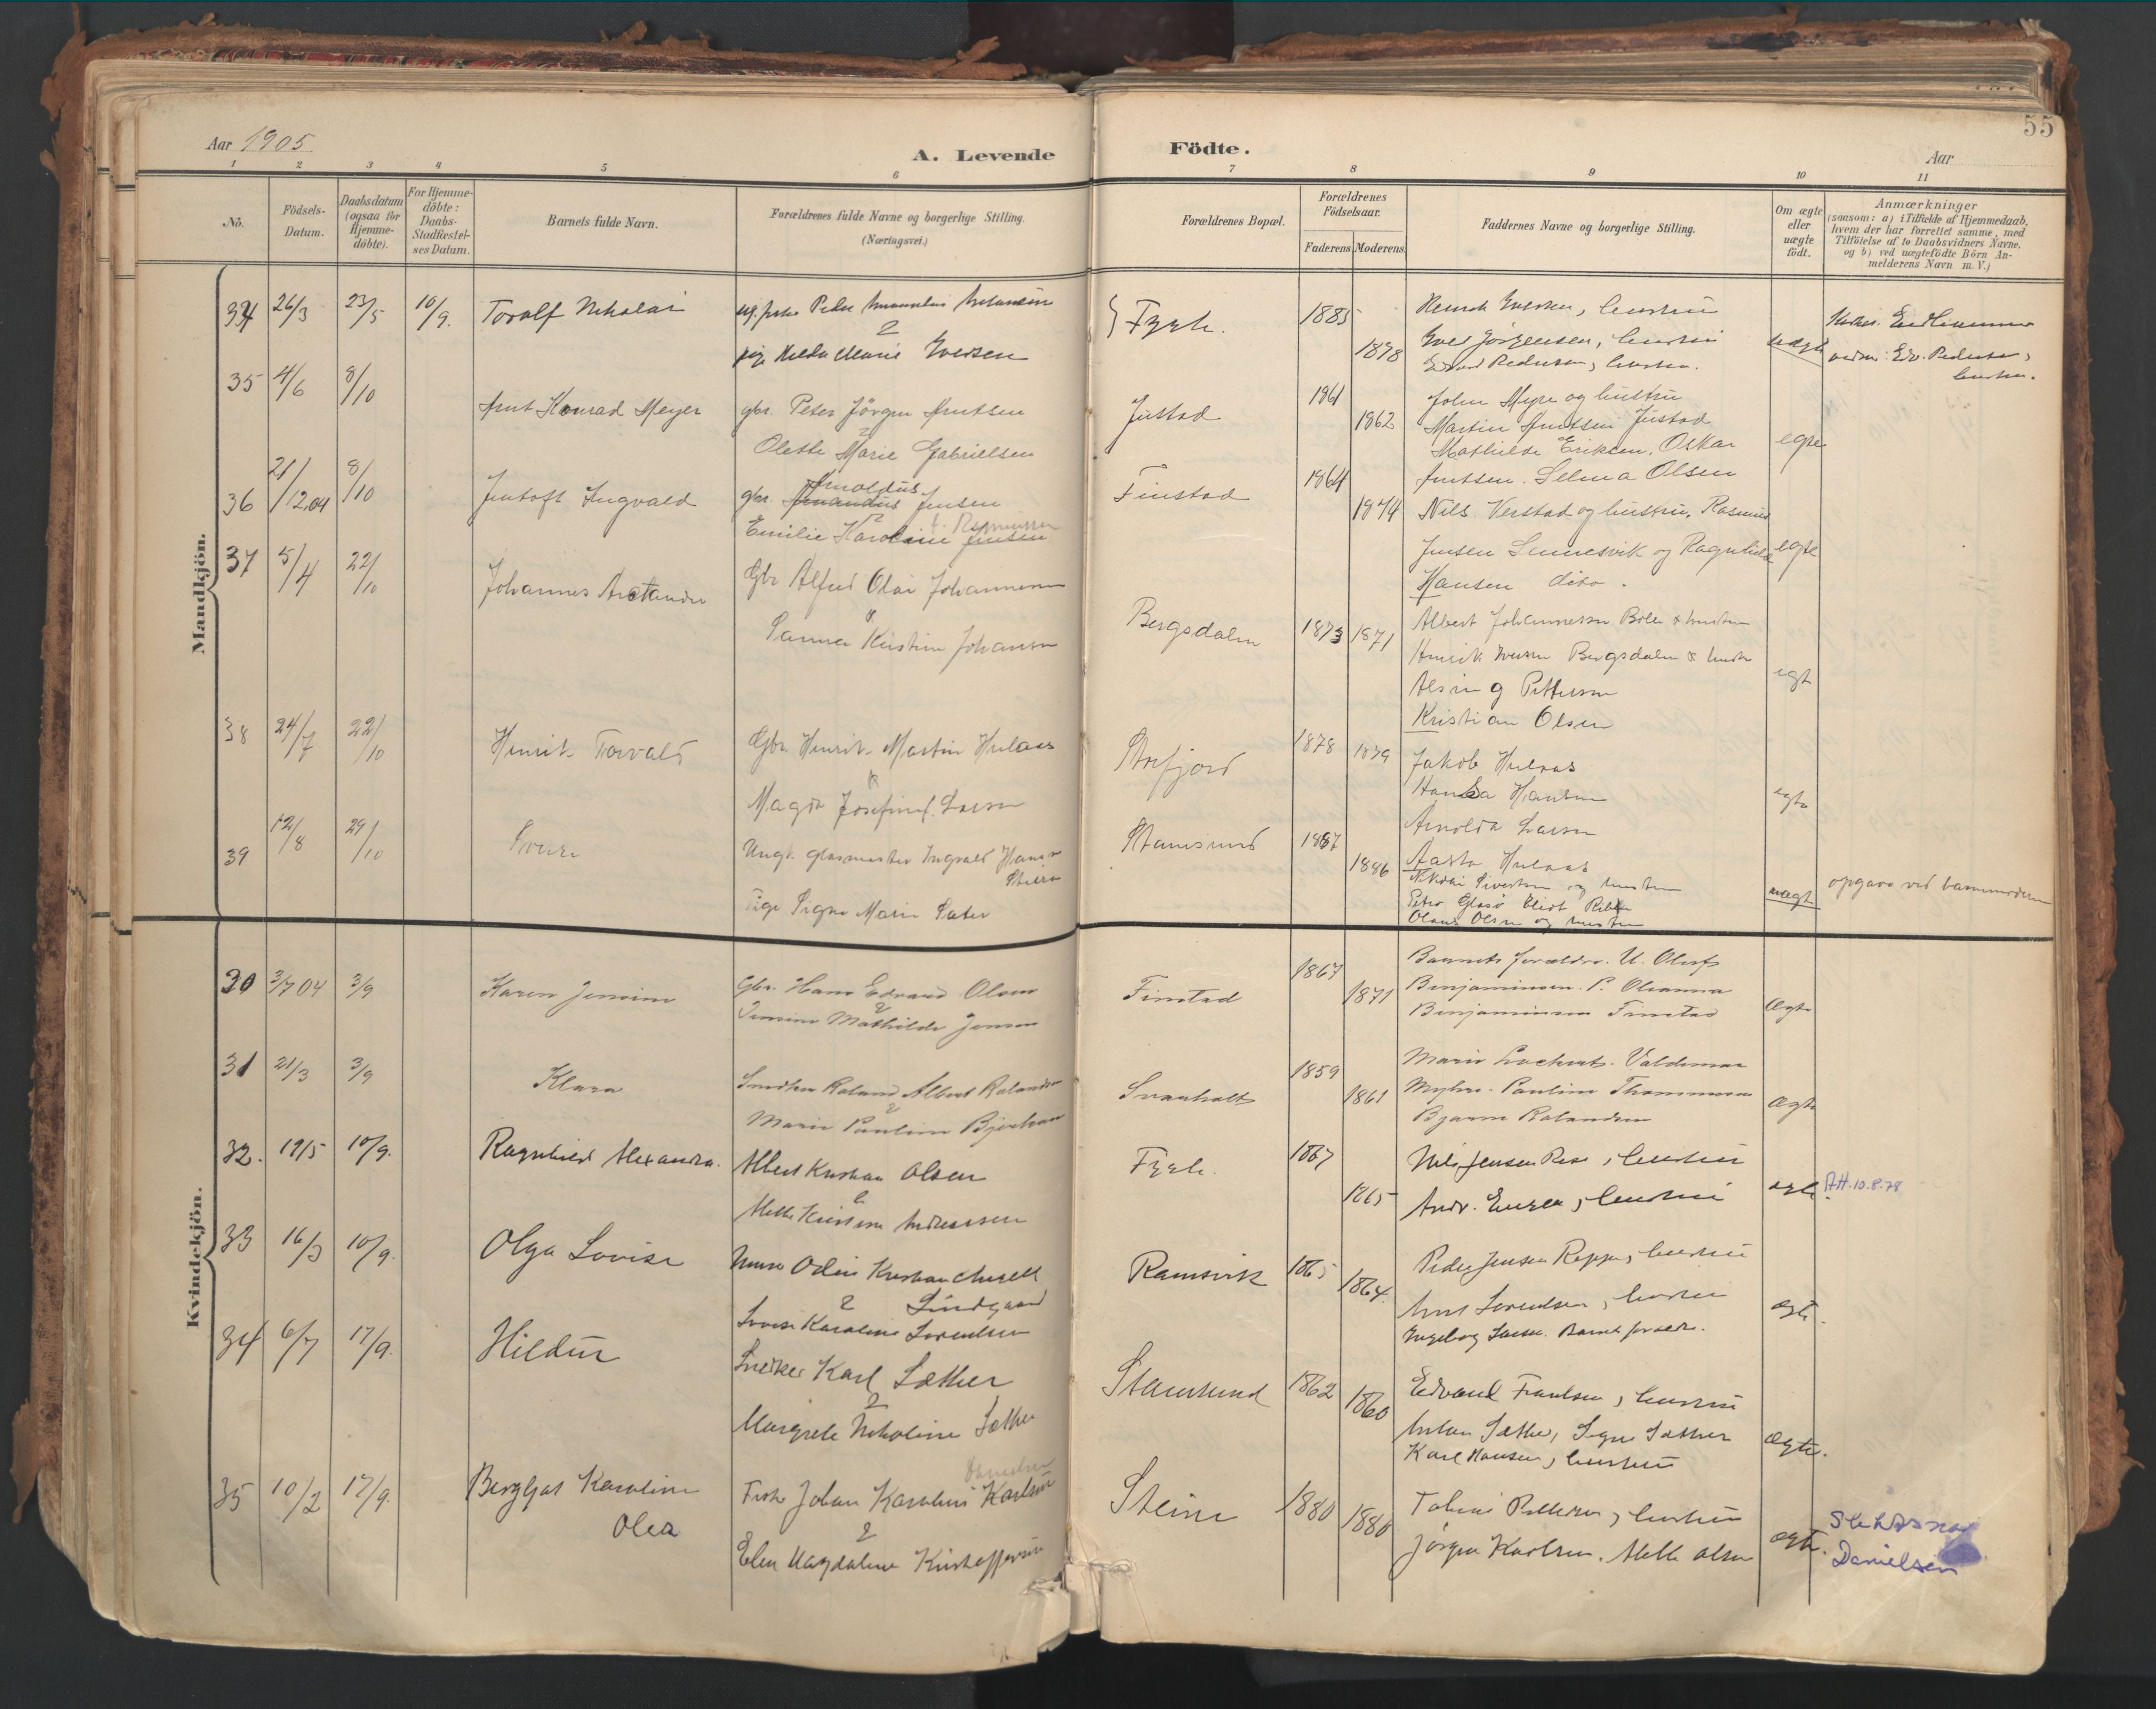 55
Aar 1905
A. Levende Födte.
Aar
1 2 3 4 5 6 7 8 9 10 11
No.
Födsels-
Datum.
Daabsdatum
(ogsaa for
Hjemme-
døbte).
For Hjemme-
døbte:
Daabs-
Stadfæstel-
ses Datum.
Barnets fulde Navn.
Forældrenes fulde Navne og borgerlige Stilling.
(Næringsvei.)
Forældrenes Bopæl.
Forældrenes
Födselsaar.
Faderens Moderens
Faddernes Navne og borgerlige Stilling.
Om ægte
eller
uægte
født.
Anmærkninger
(saasom: a) i Tilfælde af Hjemmedaab,
hvem der har forrettet samme, med
Tilföielse af to Daabsvidners Navne.
og b) ved uægtefödte Börn An-
melderens Navn m. V.)
Mandkjön.
34 26/3 23/5 10/9. Toralf Nikolai
pige Hilda Marie Iversen
Fygle. 1885 1878
Henrik Iversen, hustru
Iver Jörgensen, hustru
Edvard Pedersen, hustru.
uægte
35 4/6 8/10 Arnt Konrad Meyer
gbr. Peter Jörgen Arntsen
&
Olette Marie Gabrielsen
Justad 1861 1862
John Myre og hustru
Martin Arntsen Justad
Mathilde Eriksen, Oskar
Arntsen. Selma Olsen
egte
36 21/12.04 8/10 Jentoft Ingvald
Arnoldus
gbr. Amandus Jensen
&
Emilie Karoline Jensen
Finstad 1864 1874
Nils Verstad og hustru, Rasmus
Jensen Sennesvik og Ragnhild
Hansen dito.
egte
37 5/4 22/10 Johannes Arctander
Gbr Alfred Olai Johannesen
&
Sanna Kristine Johansen
Bergsdalen 1873 1871
Albert Johannesen Bolle & hustru
Henrik Iversen Bergsdalen & hustru
Alsing Pettersen
Kristian Olsen
egte
38 24/7 22/10 Henrik Torvald
Gbr. Henrik Martin Hulaas
&
Magda Josefine Larsen
Strefjord 1878 1879
Jakob Hulaas
Hansa Hansen
Arnolda Larsen
Aasta Hulaas
egte
39 12/8 29/10 Sverre
Ungk. glasmester Ingvald Hansen
Pige Signe Marie Sæter
Stamsund 1887 1886
Nikolai Sivertsen og hustru
Olaus Olsen og hustru
uægte
opgave ved barnemoderen
Kvindekjön.
30 3/7 04 3/9 Karen Jensine
Gbr. Hans Edvard Olsen
&
Jensine Mathilde Jensen
Finstad 1867 1871
Barnets forældre. U. Oluf
Benjaminsen. P. Oleanna
Benjaminsen Finstad
Ægte
31 21/3 3/9 Klara
Snedker Roland Albert Rolandsen
&
Marie Pauline
Svanholt 1859 1861
Marie Lockert. Valdemar
Myhre. Pauline Thommesen
Bjarne Rolandsen
Ægte
32. 19/5 10/9. Ragnhild Alexandra.
Albert Kristian Olsen
&
Mette Kristine Andreassen
Fygle. 1867 1865
Nils Jensen Rise, hustru
Andr. Engen, hustru
egte.
AH. 10.8.78
33 16/3 10/9. Olga Lovise
Murer Odin Kristian
& Lindgaard
Lovise Karoline Lorentsen
Ramsvik 1865 1864.
Peder Jensen Reppe, hustru
Arnt Lorentsen, hustru
Ingeborg Larsen. Barnets forældre.
ægte.
34 6/7 17/9. Hildur
Snedker Karl Sæther
&
Margrete Nikoline Sæther
Stamsund 1862 1860
Edvard Frantsen, hustru
Johan Sæther, Signe Sæther
Karl Hansen, hustru
Ægte.
35 10/2 17/9. Bergljot Karoline
Olea
Danielsen
Fisker Johan Karolius Karlsen
&
Elen Magdalene Kristoffersen
Steine 1880 1880
Tobias Pettersen, hustru
Jörgen Karlsen. Mette Olsen
ægte.
Slektsnavn
Danielsen